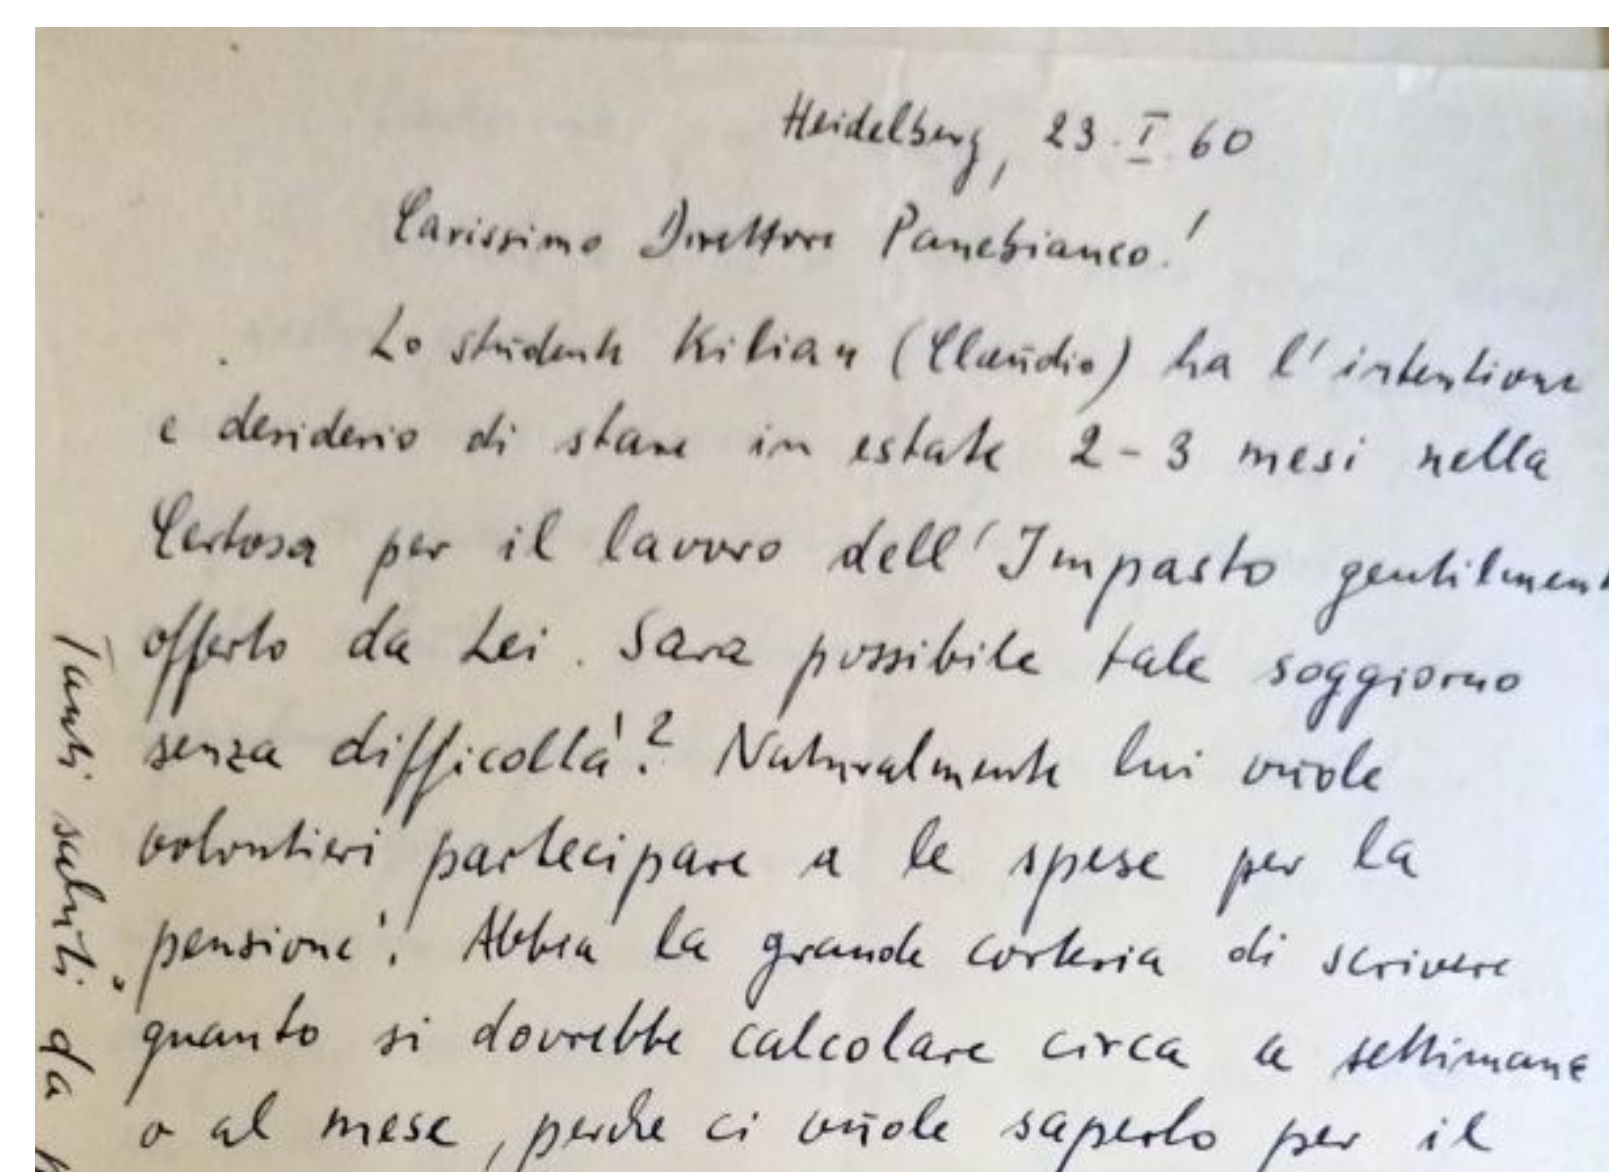 Heidelberg, 23. I. 60
Carissimo Direttore Panebianco!
Lo studente Kilian (Claudio) ha l'intentione
e desiderio di stare in estate 2-3 mesi nella
Certosa per il lavoro dell'Impasto gentilment
offerto da Lei. Sara possibile tale soggiorno
senza difficoltà? Naturalmente lui vuole
volontieri partecipare a le spese per la
„pensione‘! Abbia la grande cortesia di scrivere
quanto si dovrebbe calcolare circa a settimana
o al mese, perche ci vuole saperlo per il
Tanti saluti da